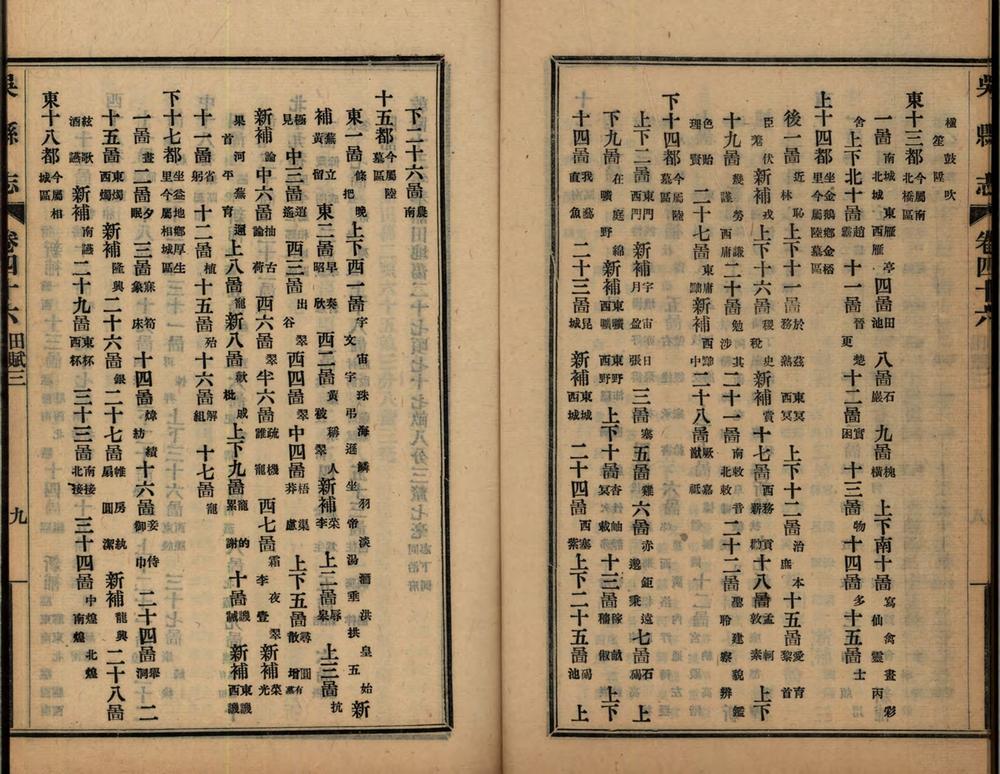 橫鼓吹
笙陞
東十三都今屬南北橋區
一啚南城東雁北城西雁亭四啚田池八啚石巖九啚槐橫上下南十啚寫仙靈丙禽畫彩
舍上下北十啚趙霸十一啚晉更楚十二啚實困十三啚物士四啚多十五啚士
上十四都坐金鵝鄉金梧里今屬陸墓區
後一啚近林恥上下十一啚於務茲熟東冥西冥上下十二啚治本十五啚愛育黎首
臣伏羌新補戎上下十六啚稷稅史新補賞十七啚西務新勸貢十八啚孟軻敦素上下
十九啚幾謹勞謙西庸二十啚勉其涉二十一啚南敕北敕音二十二啚聆察建貌納辨鑑
色貽理賢二十七啚東庸勖新補西譏中二十八啚厥嘉猷祗
下十四都今屬陸墓區
上下二啚東門西門新補宇宙日月盈張三啚塞五啚雞六啚赤邈鉅秉遠七啚石碣上
下九啚在曠庭野綿新補東曠東野西曠西野上下十啚杳岫冥載十三啚穡俶下
十四啚我直藝魚二十三啚昆城新補東城西城二十四啚西塞紫上下二十五啚池碣上
下二十六啚農南
十五都今屬陸墓區
東一啚條把晚上下西一啚字文宇宙珠弓海逊鱗坐羽帝淡湯酒垂洪拱皇五始新
補蕪黃立留東二啚早昭奏欣西二啚黃翠稱新補菜李上二啚辱皋上三啚抗
極見中三啚逍遙西三啚出谷翠西四啚翠中四啚梧莽巢慮上下五啚尋散圓增有
新補論中六啚抽論西六啚古荷翠半六啚疏雜機寵西七啚霜李夜壹翠新補菜光
果首河平蕪育邇上八啚寵新八啚歎枇成上下九啚寵累的謝十啚譏誡新補東譏西譏
十一啚省躬十二啚植十五啚殆十六啚解組十七啚寵
下十七都坐益地鄉厚生里今屬相城區
一啚晝二啚夕眠三啚寐象筍床十四啚煒紡績十六啚妾御侍巾二十四啚舉洞二
十五啚東燭西燭新補隆興二十六啚銀二十七啚帷扇房圓紈潔新補龍興二十八啚
絃歌酒讌新補南讌二十九啚東杯西杯三十三啚南接北接三十四啚中煌北煌南煌
東十八都今屬相城區
吳縣志
卷四十六
田賦三
九